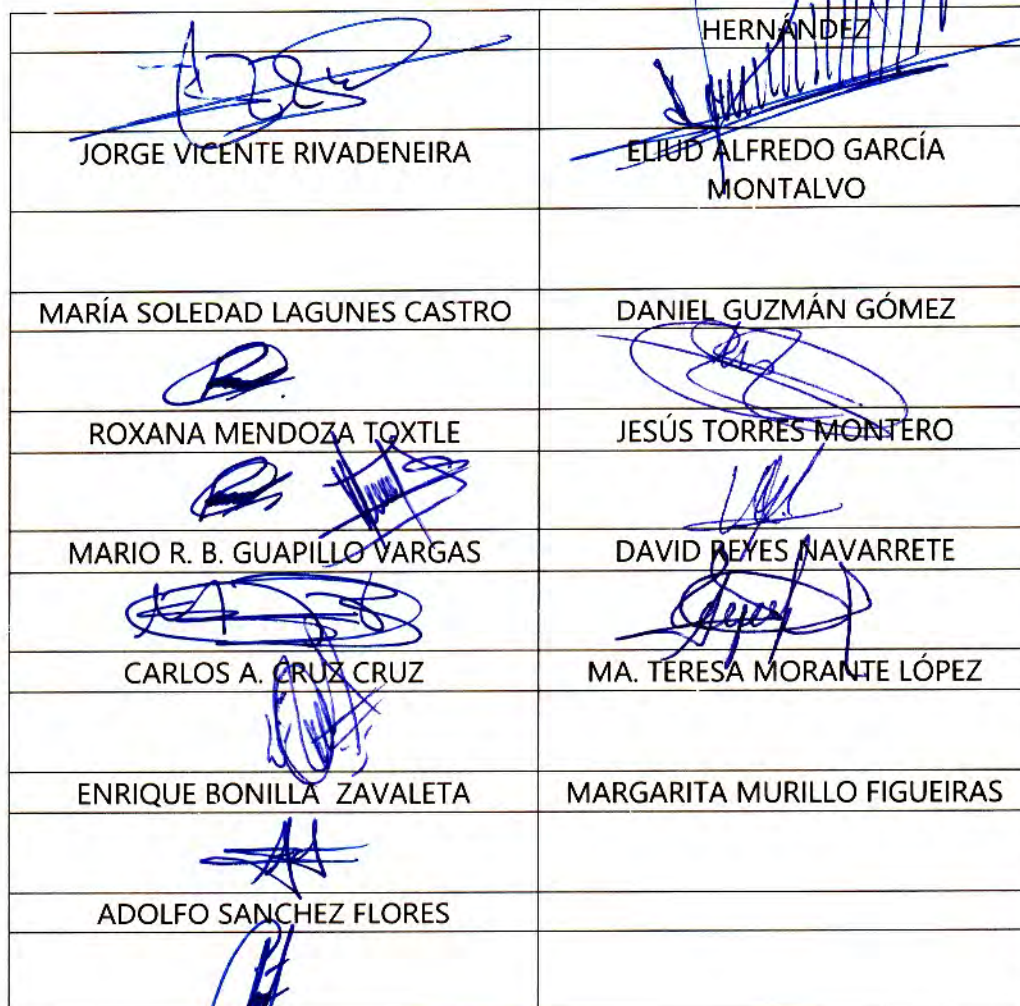 HERNÁNDEZ
JORGE VICENTE RIVADENEIRA
ELIUD ALFREDO GARCÍA
MONTALVO
MARÍA SOLEDAD LAGUNES CASTRO
DANIEL GUZMÁN GÓMEZ
ROXANA MENDOZA TOXTLE
JESÚS TORRES MONTERO
MARIO R. B. GUAPILLO VARGAS
DAVID REYES NAVARRETE
CARLOS A. CRUZ CRUZ
MA. TERESA MORANTE LÓPEZ
ENRIQUE BONILLA ZAVALETA
MARGARITA MURILLO FIGUEIRAS
ADOLFO SANCHEZ FLORES